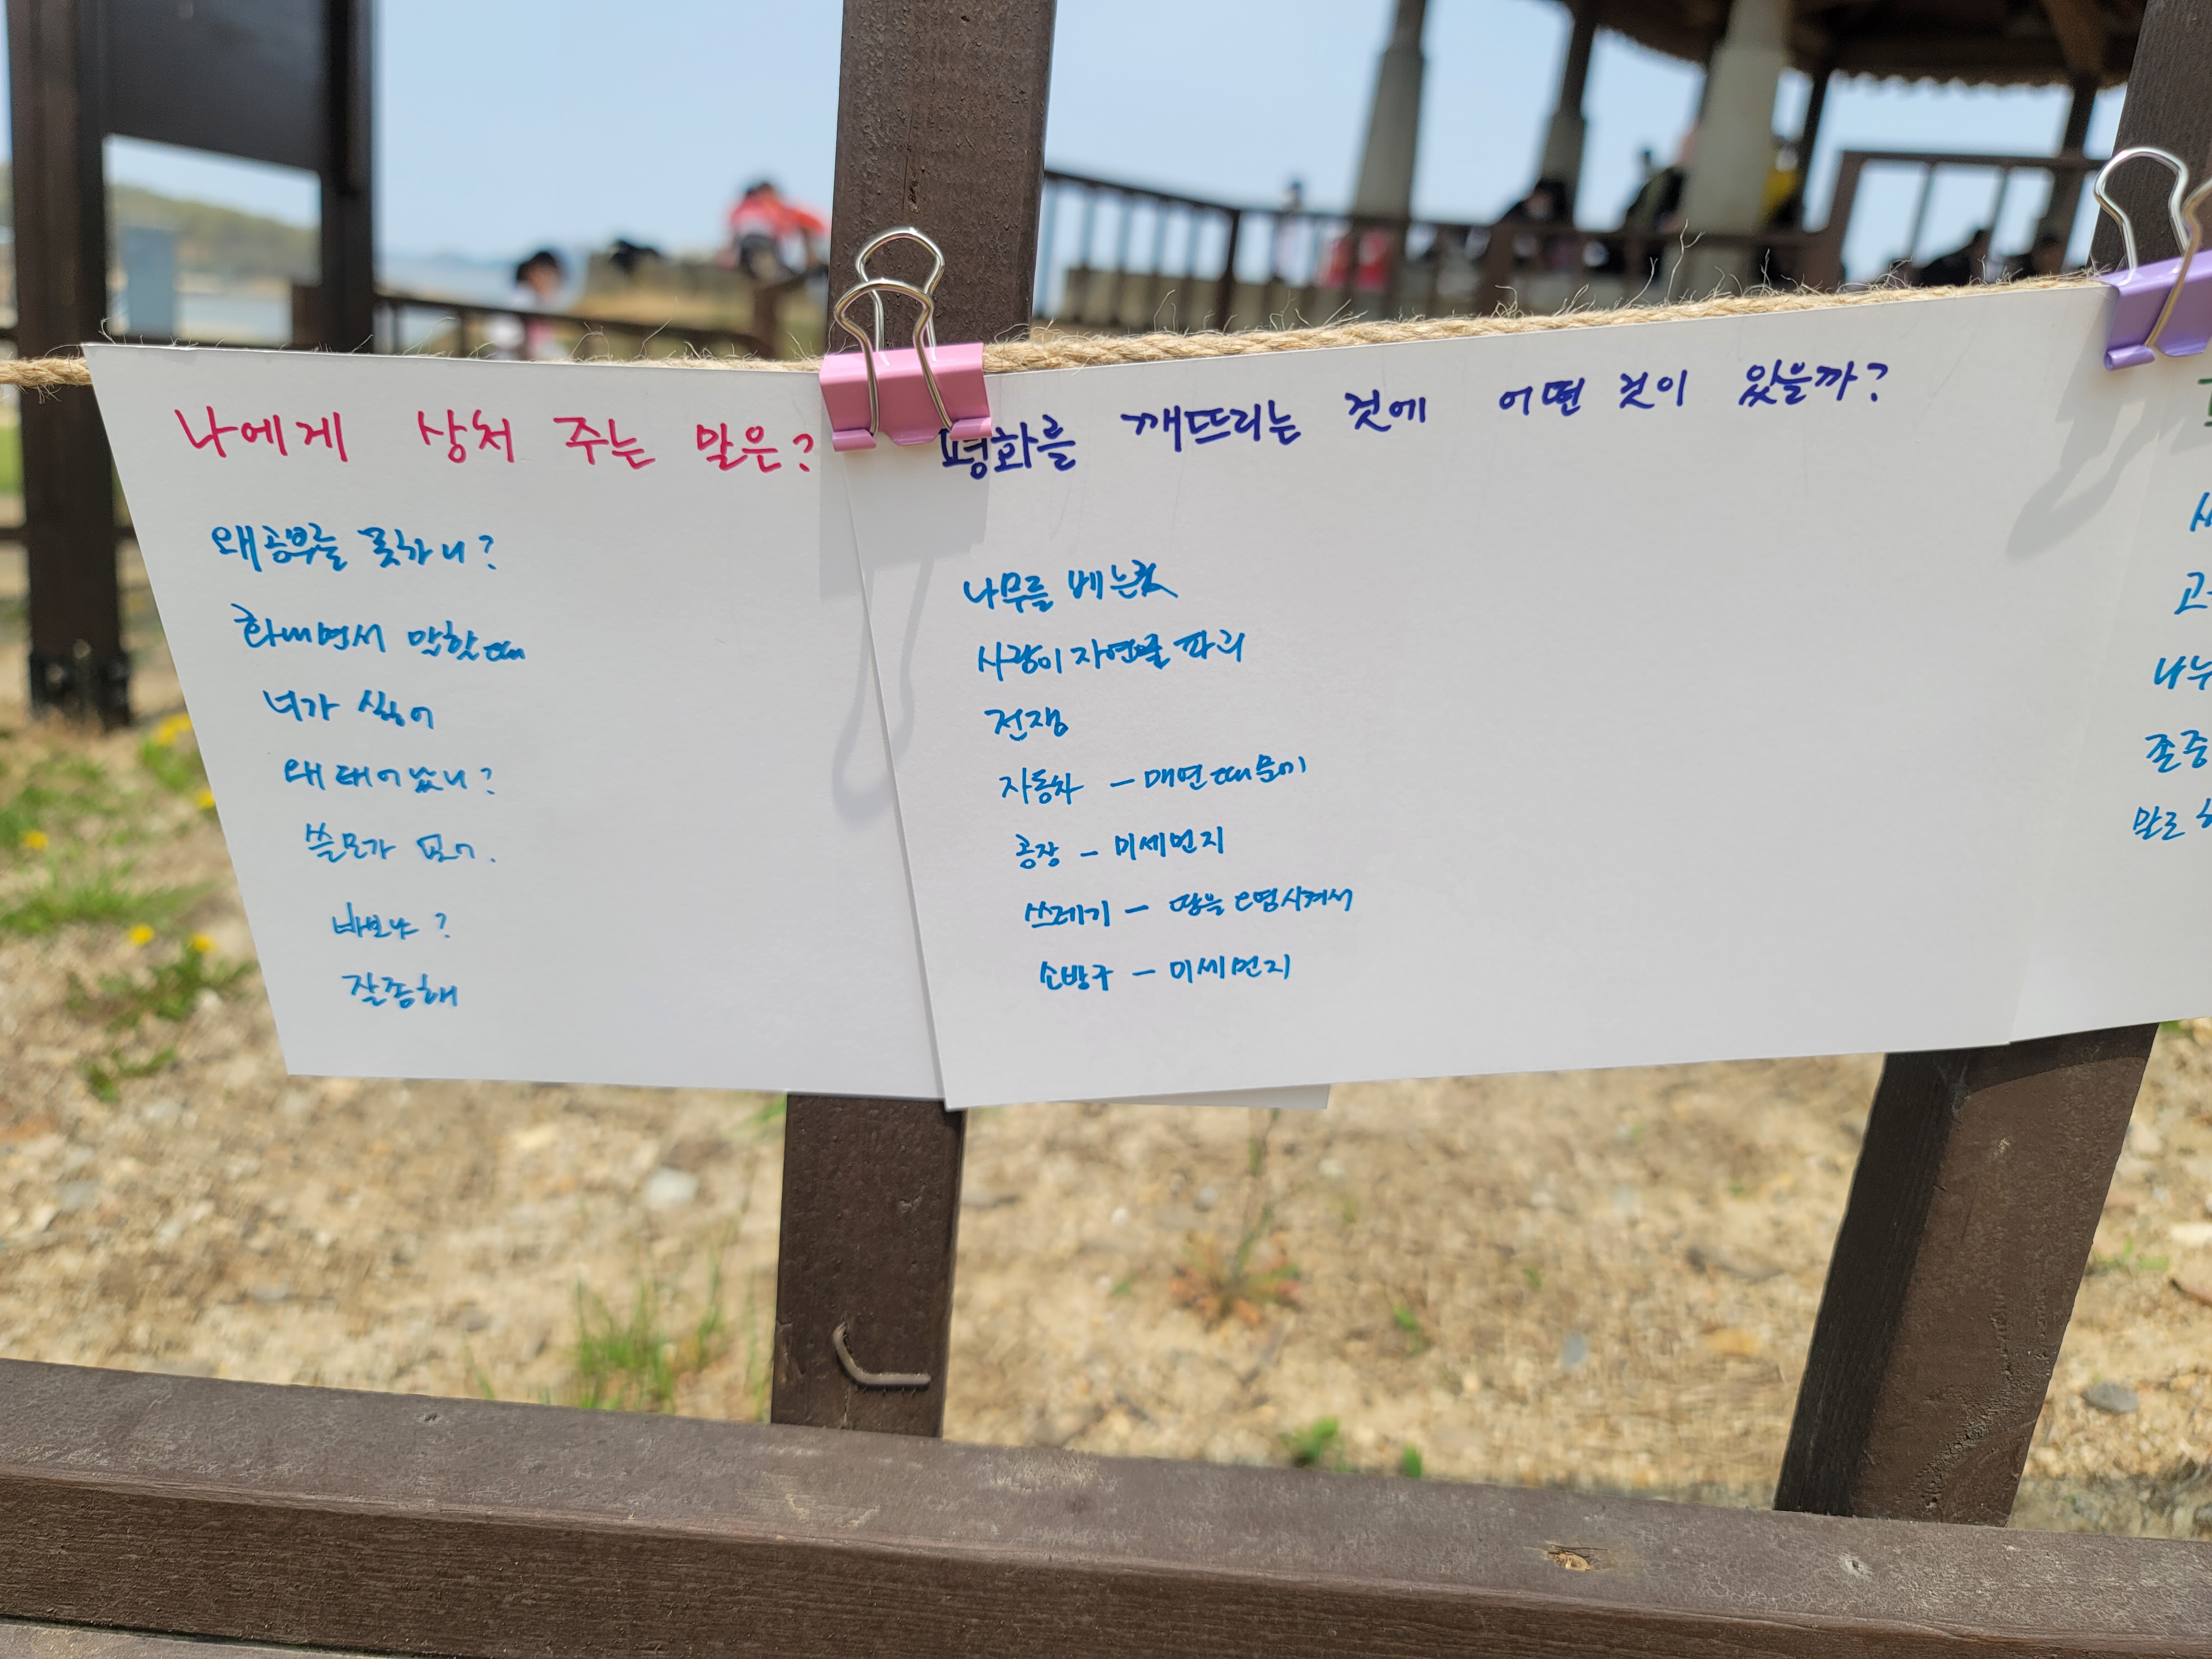 나에게 상처 주는 말은?
왜 공부를 못하니?
화내면서 말할때
너가 싫어
왜 태어났니?
쓸모가 없어.
바보냐?
잘좀해
평화를 깨뜨리는 것에 어떤 것이 있을까?
나무를 베는것
사람이 자연을 파괴
전쟁
자동차 – 매연때문에
공장 – 미세먼지
쓰레기 – 땅을 오염시켜서
소방구 – 미세먼지
존중
말로